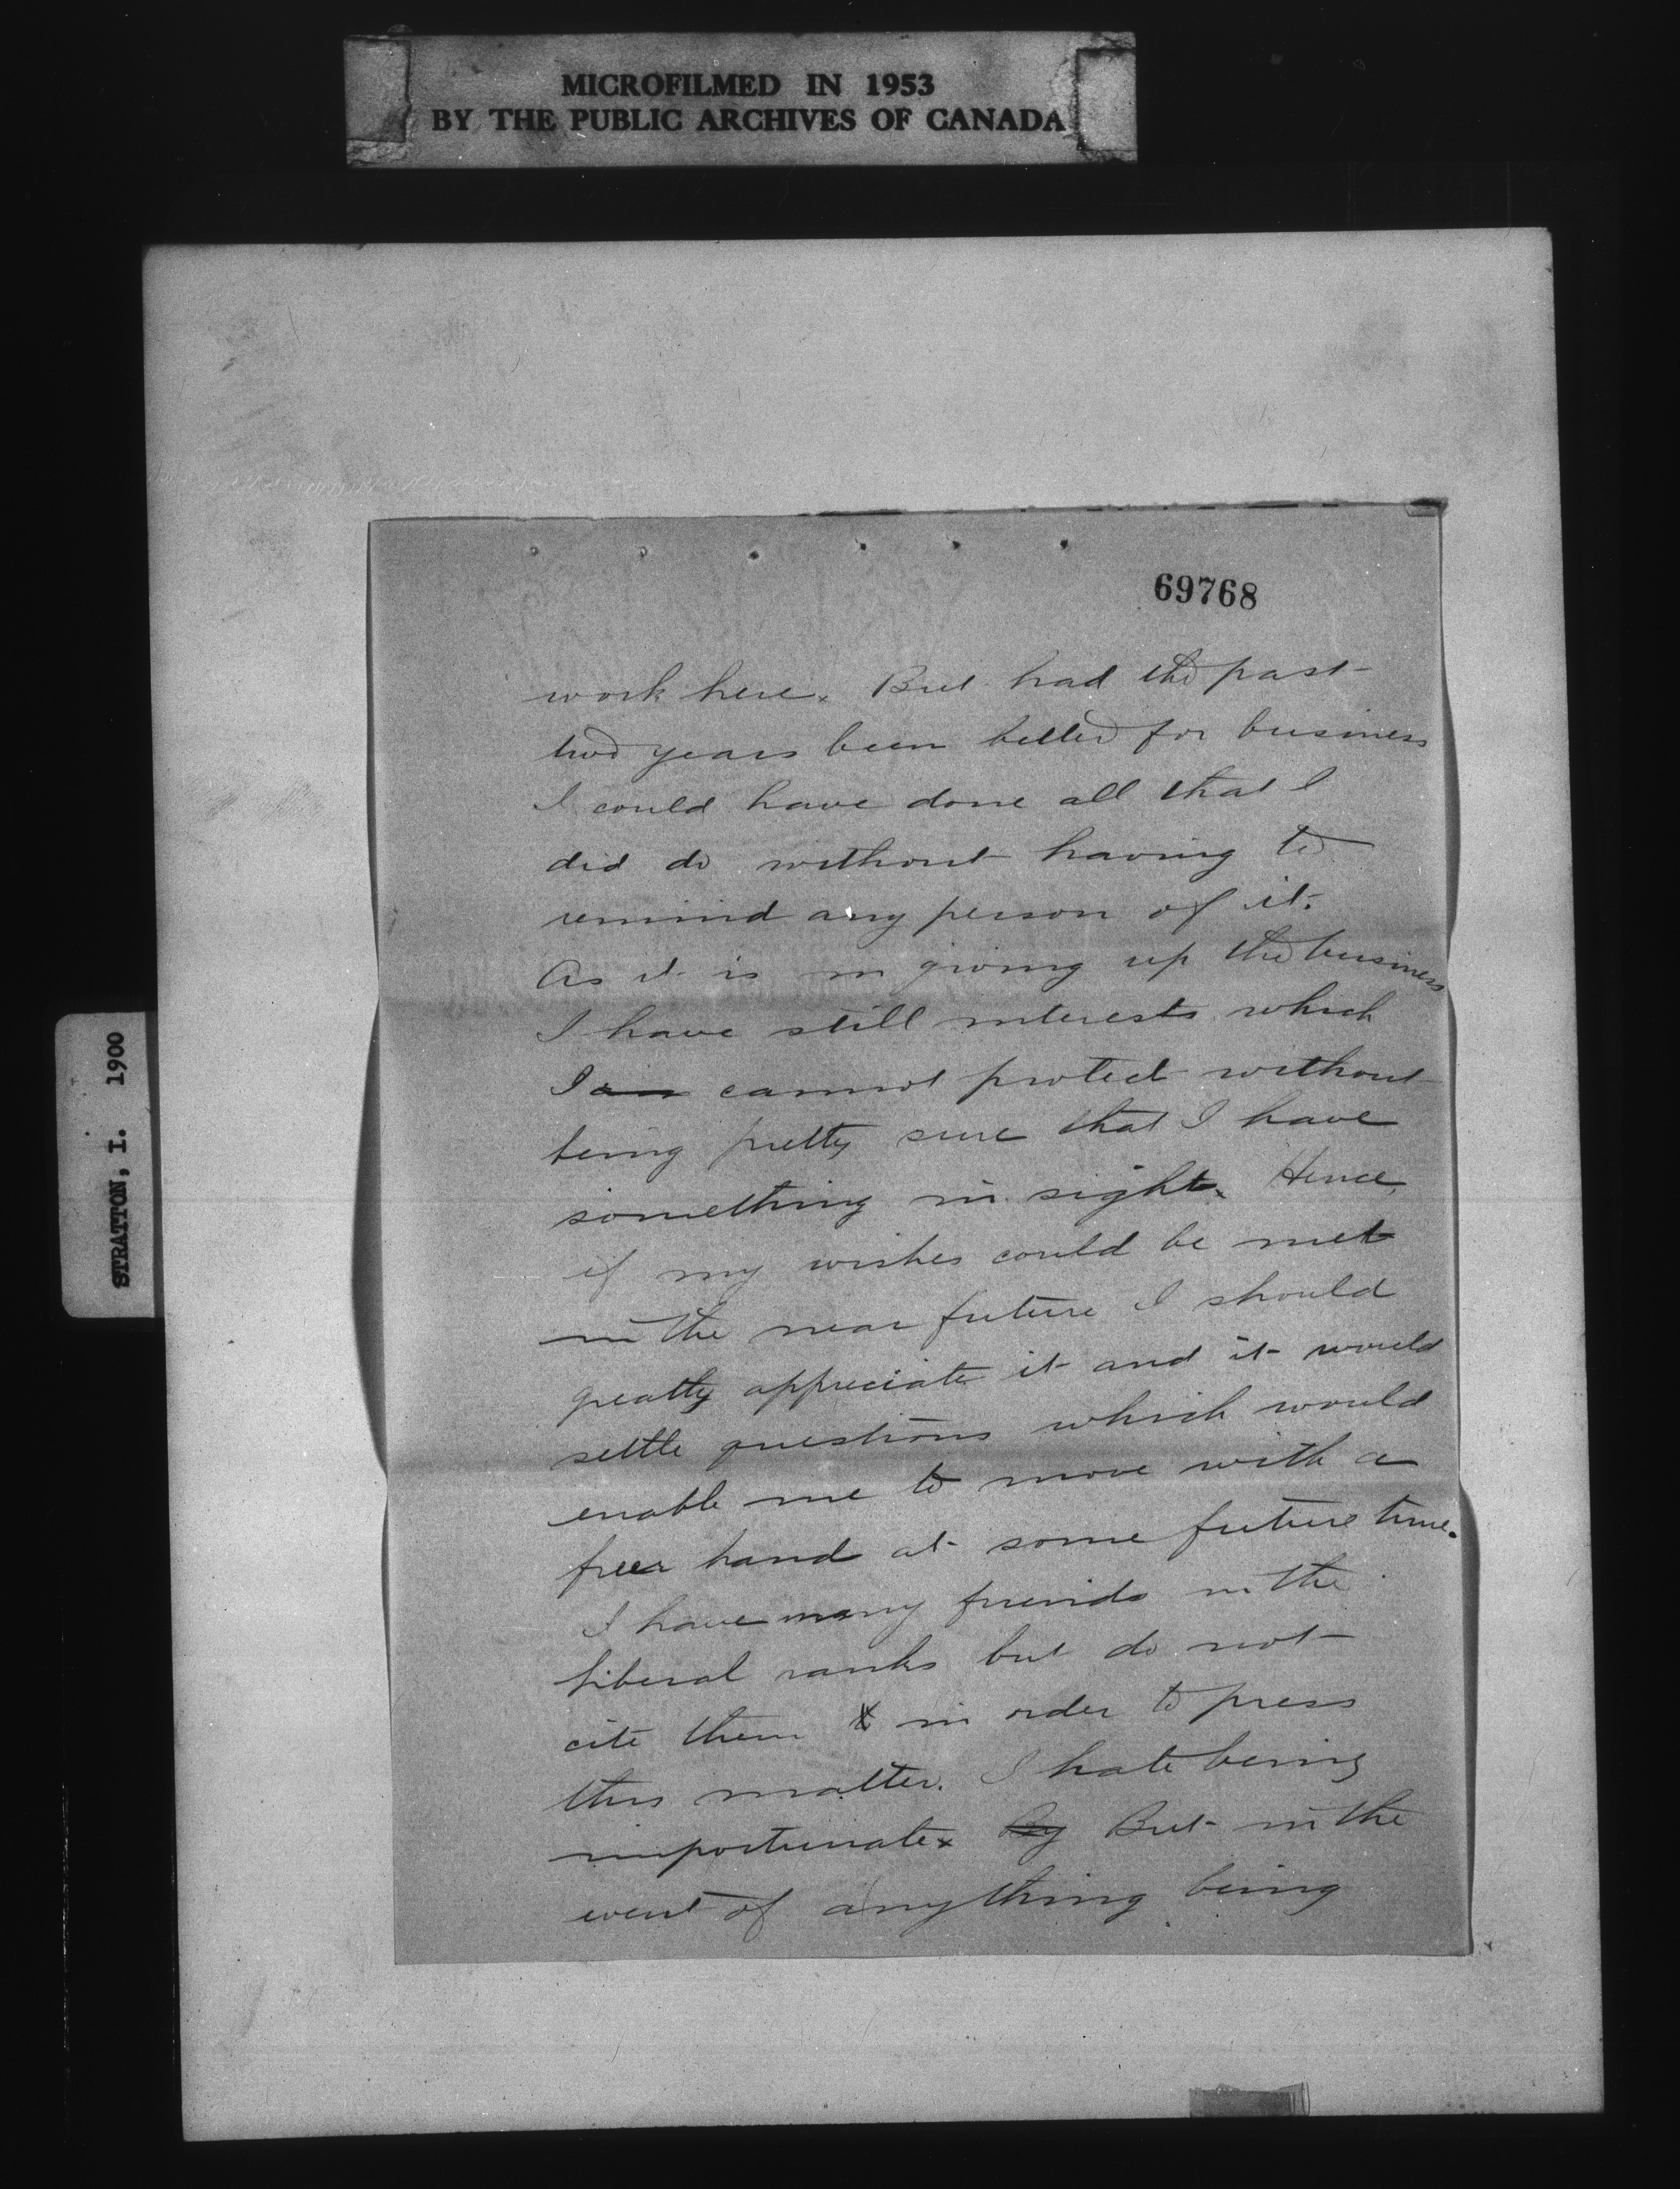 MICROFILMED IN 1953
BY THE PUBLIC ARCHIVES OF CANADA
STRATTON, I. 1900
69768
work here. But had the past
two years been better for business
I could have done all that I
did do without having to
remind any person of it.
As it is in giving up the business
I have still interests which
I am cannot protect without
being pretty sure that I have
something in sight. Hence,
if my wishes could be met
in the near future I should
greatly appreciate it and it would
settle questions which would
enable me to move with a
freer hand at some future time.
I have many friends in the
liberal ranks but do not
cite them in order to press
this matter. I hate being
importunate. By But in the
event of anything being